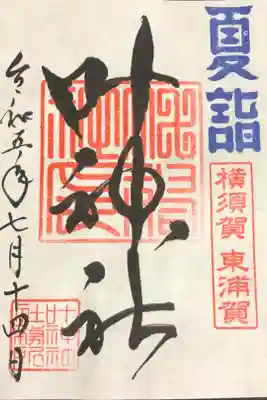 夏詣
横須賀 東浦賀
叶神社
令和五年七月十四日